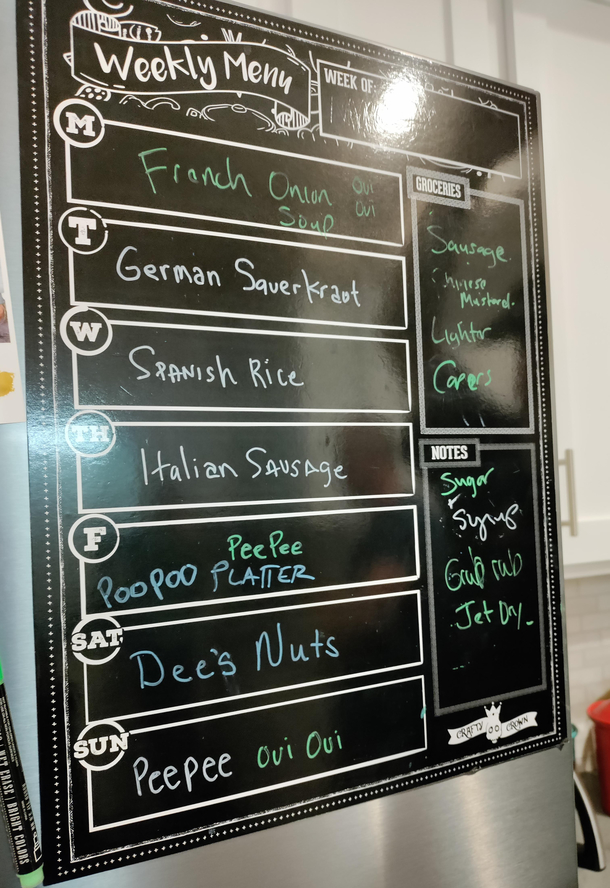 Weekly Menu
WEEK OF:
M
French Onion Oui
Soup Oui
T
German Sauerkraut
W
SPANISH RICE
TH
Italian SAUSAGE
F
PeePee
POOPOO PLATTER
SAT
Dee's Nuts
SUN
PeePee oui oui
GROCERIES
Sausage
Chinese
Mustard.
Lighter
Capers
NOTES
Sugar
Syrup
Grub rub
Jet Dry
CRAFTY CROWN
BRIGHT COLORS